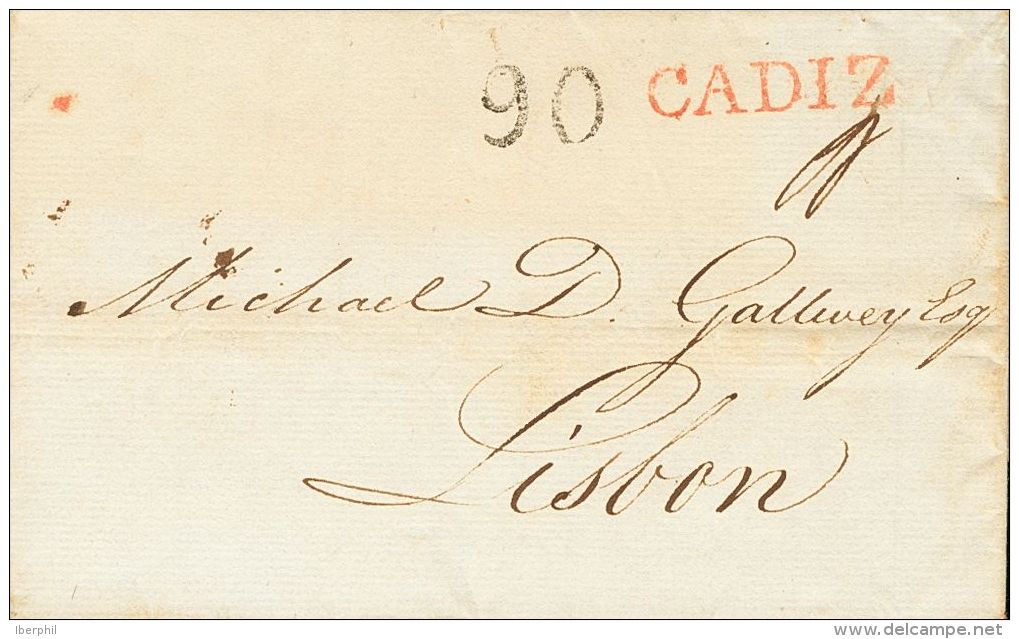 90 CADIZ
Michael D. Gallwey Esq
Lisbon
Iberphil
delcampe.net